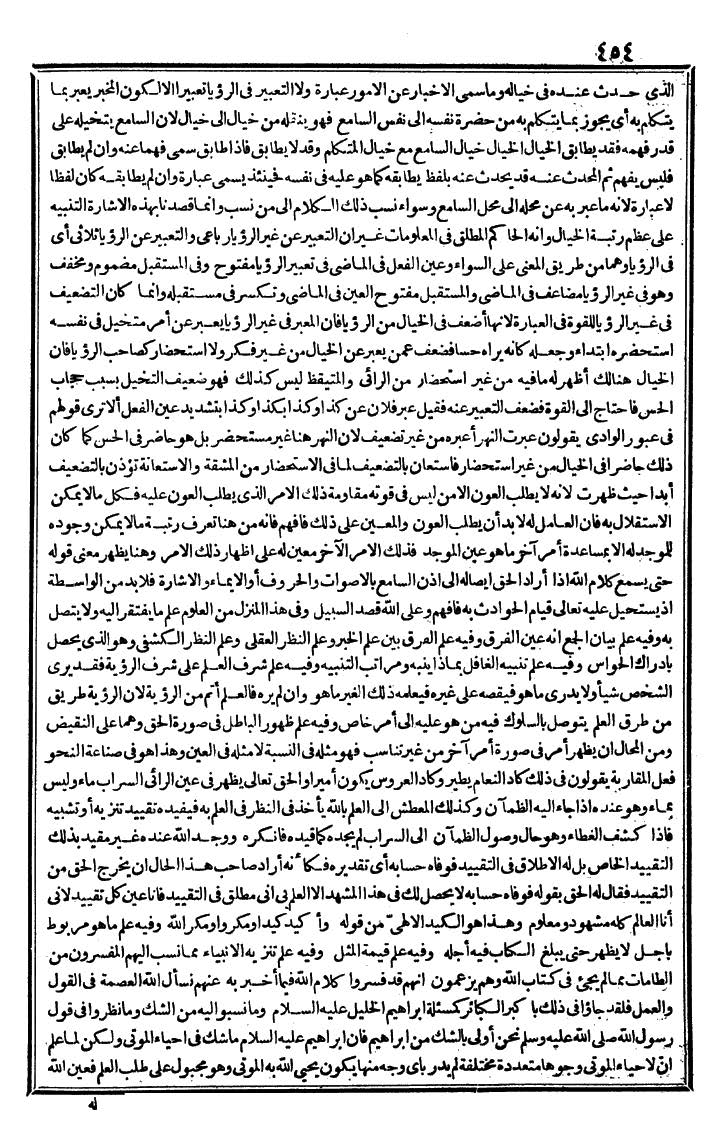 ٤٥٤
الذي حدث عنده في خياله وما سمى الاخبار عن الامور عبارة ولا التعبير في الرؤيا تعبيرا الا لكون المخبر يعبر بما
يتكلم به أي يجوز بما يتكلم به من حضرة نفسه الى نفس السامع فهو ينقله من خيال الى خيال لان السامع يتخيله على
قدر فهمه فقد يطابق الخيال الخيال خيال السامع مع خيال المتكلم وقد لا يطابق فاذا طابق سمى فهما عنه وان لم يطابق
فليس بفهم ثم المحدث عنه قد يحدث عنه بلفظ يطابقه كما هو عليه في نفسه فحينئذ يسمى عبارة وان لم يطابقه كان لفظا
لا عبارة لانه ما عبر به عن محله الى محل السامع وسواء نسب ذلك الكلام الى من نسب وانما قصدنا بهذه الاشارة التنبيه
على عظم رتبة الخيال وانه الحاكم المطلق في المعلومات غير ان التعبير عن غير الرؤيا رباعي والتعبير عن الرؤيا ثلاثي أي
في الرؤيا وهما من طريق المعنى على السواء وعين الفعل في الماضي في تعبير الرؤيا مفتوح وفي المستقبل مضموم ومخفف
وهو في غير الرؤيا مضاعف في الماضي والمستقبل مفتوح العين في الماضي وتكسر في مستقبله وانما كان التضعيف
في غير الرؤيا للقوة في العبارة لانها أضعف في الخيال من الرؤيا فان المعبر في غير الرؤيا يعبر عن أمر متخيل في نفسه
استحضره ابتداء وجعله كانه يراه حسا فضعف عمن يعبر عن الخيال من غير فكر ولا استحضار كصاحب الرؤيا فان
الخيال هنالك أظهر له ما فيه من غير استحضار من الرائي والمتيقظ ليس كذلك فهو ضعيف التخيل بسبب حجاب
الحس فاحتاج الى القوة فضعف التعبير عنه فقيل عبر فلان عن كذا وكذا بكذا وكذا بتشديد عين الفعل ألا ترى قولهم
في عبور الوادي يقولون عبرت النهر أعبره من غير تضعيف لان النهر هنا غير مستحضر بل هو حاضر في الحس كما كان
ذلك حاضرا في الخيال من غير استحضار فاستعان بالتضعيف لما في الاستحضار من المشقة والاستعانة تؤذن بالتضعيف
أبدا حيث ظهرت لانه لا يطلب العون الا من ليس في قوته مقاومة ذلك الامر الذي يطلب العون عليه فكل ما لا يمكن
الاستقلال به فان العامل له لا بد أن يطلب العون والمعين على ذلك فافهم فانه من هنا تعرف رتبة ما لا يمكن وجوده
للموجد له الا بمساعدة أمر آخر ما هو عين الموجد فذلك الامر الآخر معين له على اظهار ذلك الامر وهنا يظهر معنى قوله
حتى يسمع كلام الله اذا أراد الحق ايصاله الى اذن السامع بالاصوات والحروف أو الايماء والاشارة فلا بد من الواسطة
اذ يستحيل عليه تعالى قيام الحوادث به فافهم وعلى الله قصد السبيل وفي هذا المنزل من العلوم علم ما يفتقر اليه ولا يتصل
به وفيه علم بيان الجمع انه عين الفرق وفيه علم الفرق بين علم الخبر وعلم النظر العقلي وعلم النظر الكشفي وهو الذي يحصل
بادراك الحواس وفيه علم تنبيه الغافل بماذا ينبه ومراتب التنبيه وفيه علم شرف العلم على شرف الرؤية فقد يرى
الشخص شيأ ولا يدري ما هو فيقصه على غيره فيعلمه ذلك الغير ما هو وان لم يره فالعلم أتم من الرؤية لان الرؤية طريق
من طرق العلم يتوصل بالسلوك فيه من هو عليه الى أمر خاص وفيه علم ظهور الباطل في صورة الحق وهما على النقيض
ومن المحال ان يظهر أمر في صورة أمر آخر من غير تناسب فهو مثله في النسبة لا مثله في العين وهذا هو في صناعة النحو
فعل المقاربة يقولون في ذلك كاد النعام يطير وكاد العروس يكون أميرا والحق تعالى يظهر في عين الرائي السراب ماء وليس
بماء وهو عنده اذا جاء اليه الظمآن وكذلك المعطش الى العلم بالله يأخذ في النظر في العلم به فيفيده تقييد تنزيه أو تشبيه
فاذا كشف الغطاء وهو حال وصول الظمآن الى السراب لم يجده كما قيده فانكره ووجد الله عنده غير مقيد بذلك
التقييد الخاص بل له الاطلاق في التقييد فوفاه حسابه أي تقديره فكأنه أراد صاحب هذا الحال ان يخرج الحق من
التقييد فقال له الحق بقوله فوفاه حسابه لا يحصل لك في هذا المشهد الا العلم بي اني مطلق في التقييد فانا عين كل تقييد لاني
أنا العالم كله مشهود ومعلوم وهذا هو الكيد الالهي من قوله وأكيد كيدا ومكروا ومكر الله وفيه علم ما هو مربوط
باجل لا يظهر حتى يبلغ الكتاب فيه أجله وفيه علم قيمة المثل وفيه علم تنزيه الانبياء مما نسب اليهم المفسرون من
الطامات مما لم يجئ في كتاب الله وهم يزعمون انهم قد فسروا كلام الله فيما أخبر به عنهم نسأل الله العصمة في القول
والعمل فلقد جاؤا في ذلك باكبر الكبائر كمسئلة ابراهيم الخليل عليه السلام وما نسبوا اليه من الشك وما نظروا في قول
رسول الله صلى الله عليه وسلم نحن أولى بالشك من ابراهيم فان ابراهيم عليه السلام ما شك في احياء الموتى ولكن لما علم
انّ لاحياء الموتى وجوها متعددة مختلفة لم يدر باي وجه منها يكون يحيي الله به الموتى وهو مجبول على طلب العلم فعين الله
له